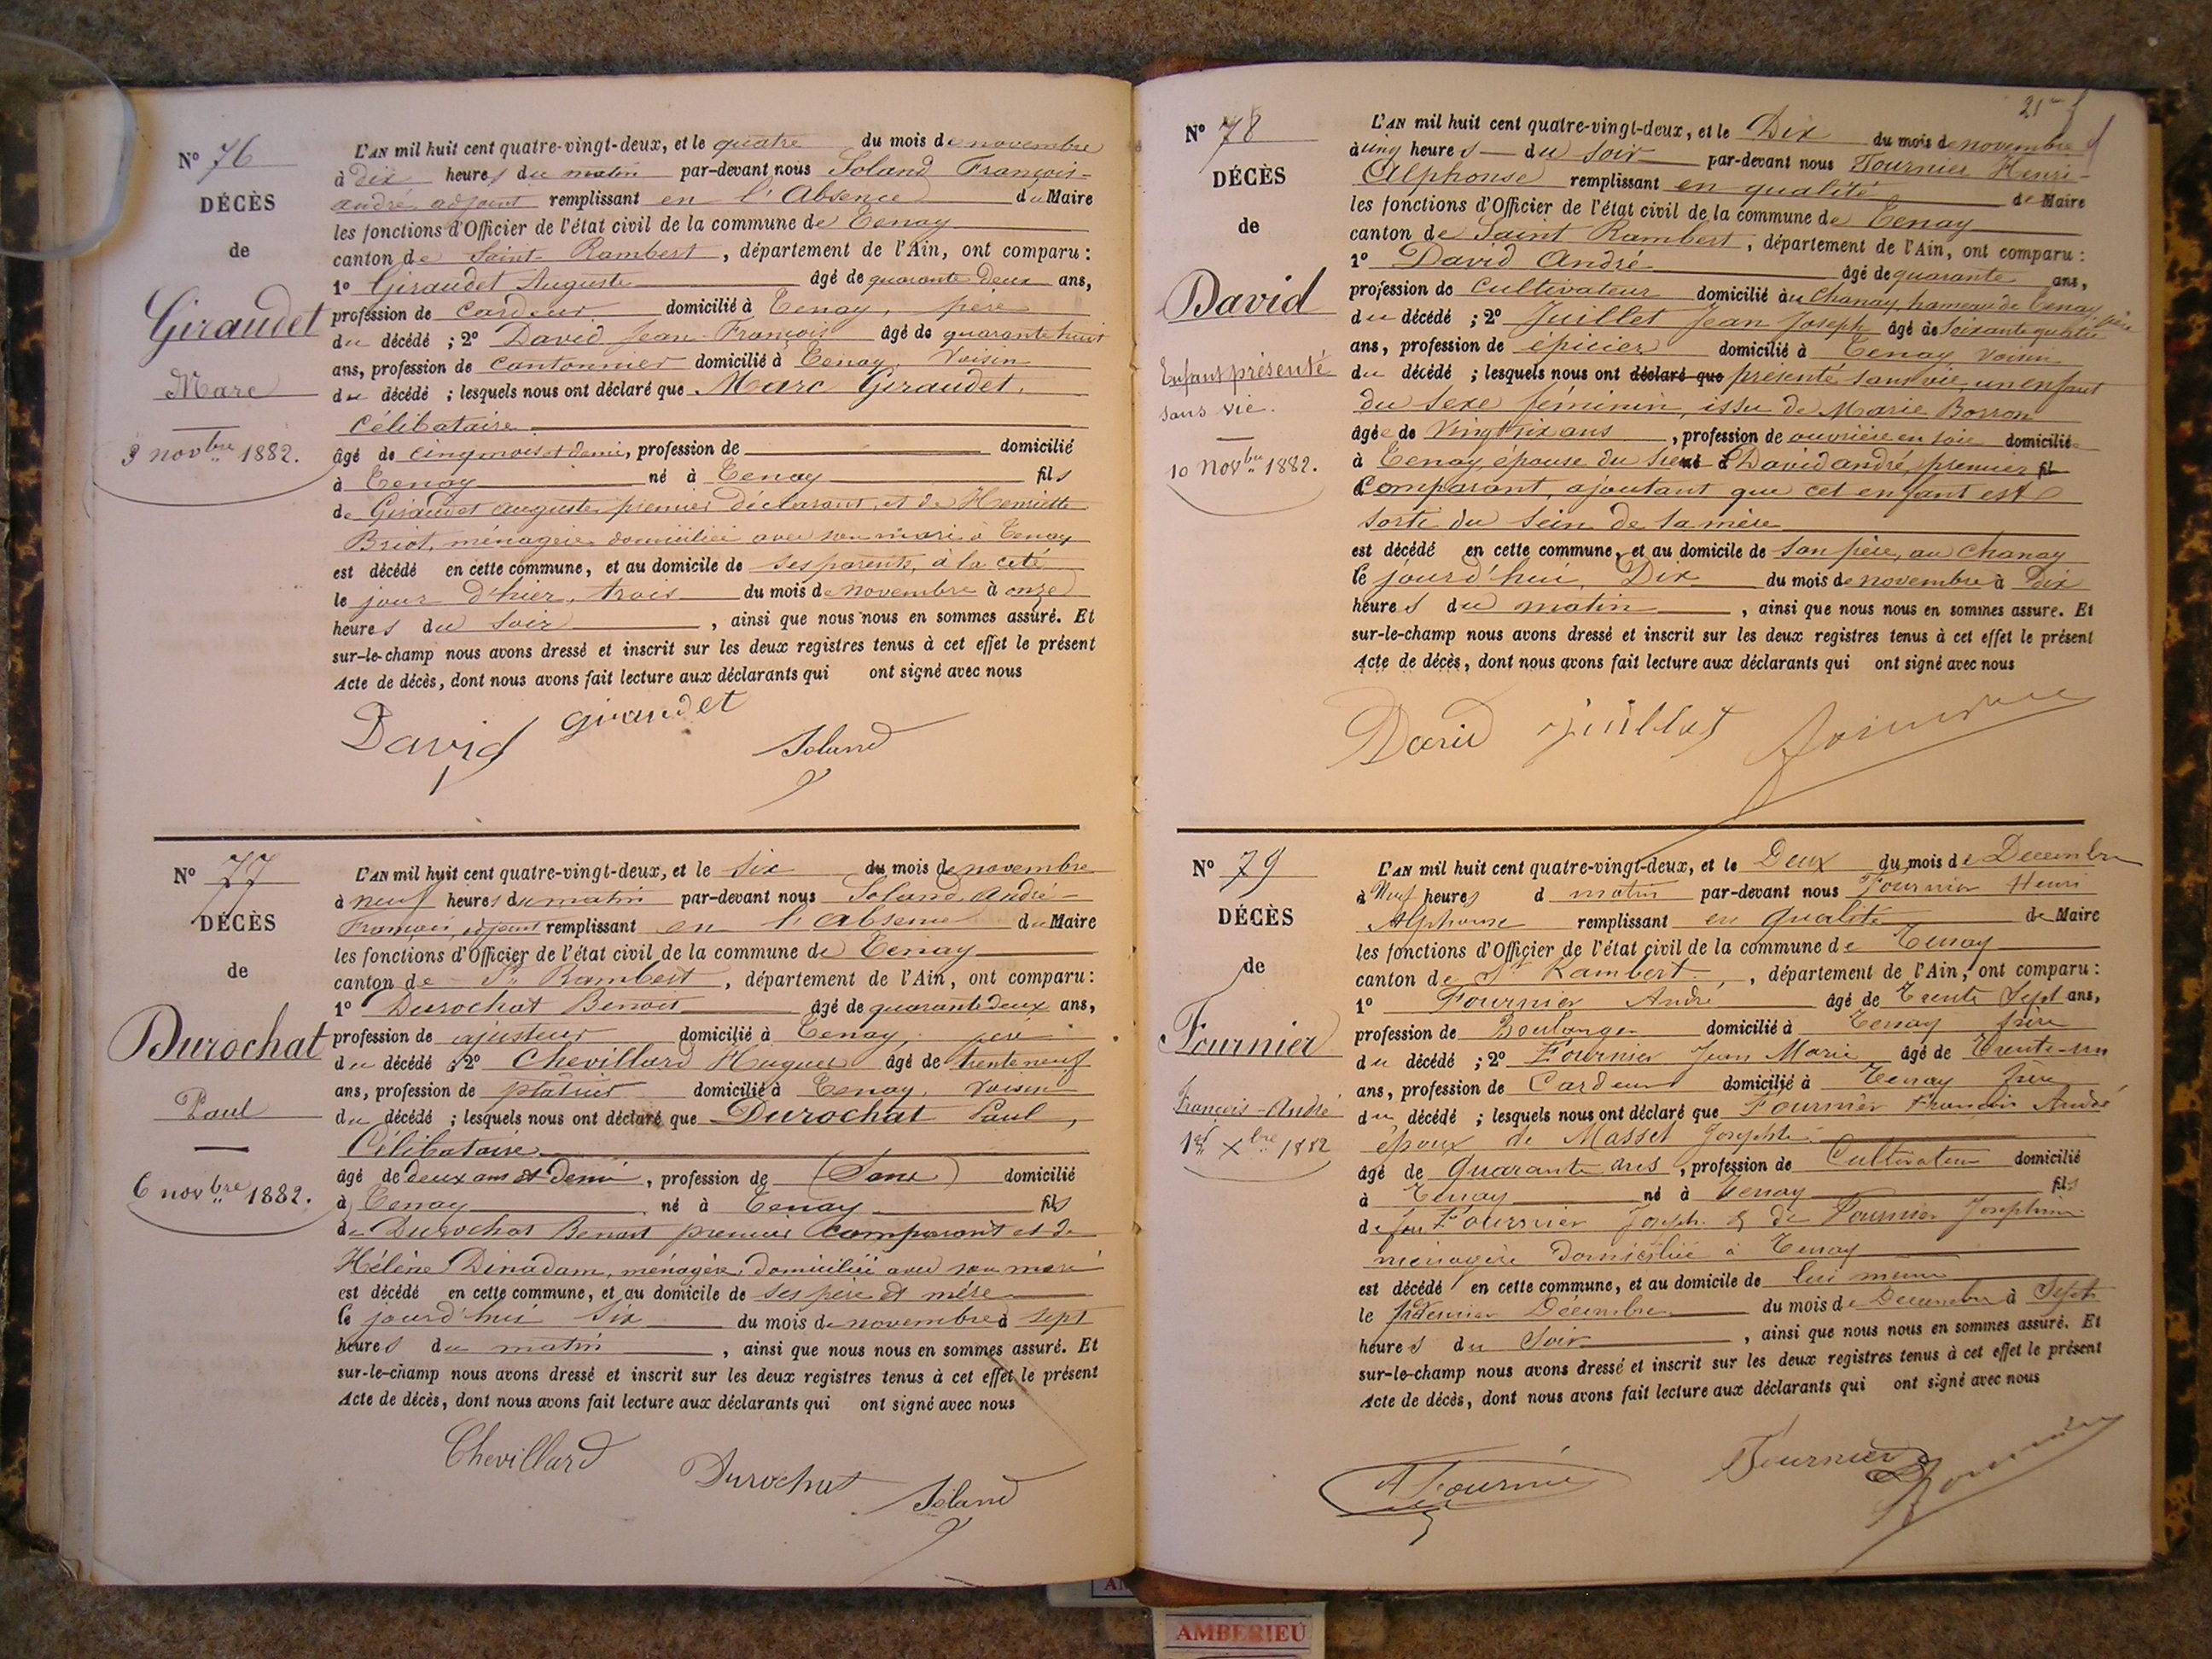 Nº 76
DÉCÈS
de
Giraudet
Marc
3 novbre 1882.
L'AN mil huit cent quatre-vingt-deux, et le quatre du mois de novembre
à dix heures du matin par-devant nous Soland François-
andré adjoint remplissant en l'Absence du Maire
les fonctions d'Officier de l'état civil de la commune de Tenay
canton de Saint-Rambert, département de l'Ain, ont comparu :
1º Giraudet Auguste âgé de quarante deux ans,
profession de cardeur domicilié à Tenay, père
du décédé ; 2º David Jean-François âgé de quarante huit
ans, profession de cantonnier domicilié à Tenay, Voisin
du décédé ; lesquels nous ont déclaré que Marc Giraudet,
Célibataire
âgé de cinq mois et demi, profession de domicilié
à Tenay né à Tenay fils
de Giraudet auguste premier déclarant, et de Henriette
Briot, ménagère domiciliée avec son mari à Tenay
est décédé en cette commune, et au domicile de ses parents, à la cité
le jour d'hier, trois du mois de novembre à onze
heures du soir, ainsi que nous nous en sommes assuré. Et
sur-le-champ nous avons dressé et inscrit sur les deux registres tenus à cet effet le présent
Acte de décès, dont nous avons fait lecture aux déclarants qui ont signé avec nous
David giraudet Soland
Nº 77
DÉCÈS
de
Durochat
Paul
6 novbre 1882.
L'AN mil huit cent quatre-vingt-deux, et le six du mois de novembre
à neuf heures du matin par-devant nous Soland André-
François, adjoint remplissant en l'Absence du Maire
les fonctions d'Officier de l'état civil de la commune de Tenay
canton de St Rambert, département de l'Ain, ont comparu :
1º Durochat Benoit âgé de quarante deux ans,
profession de ajusteur domicilié à Tenay, père
du décédé ; 2º Chevillard Hugues âgé de trente neuf
ans, profession de platrier domicilié à Tenay, Voisin
du décédé ; lesquels nous ont déclaré que Durochat Paul,
Célibataire
âgé de deux ans et demi, profession de (Sans) domicilié
à Tenay né à Tenay fils
de Durochat Benoit premier comparant et de
Hélène Dinadam, ménagère, domiciliée avec son mari
est décédé en cette commune, et au domicile de ses père et mère
le jourd'hui six du mois de novembre à sept
heures du matin, ainsi que nous nous en sommes assuré. Et
sur-le-champ nous avons dressé et inscrit sur les deux registres tenus à cet effet le présent
Acte de décès, dont nous avons fait lecture aux déclarants qui ont signé avec nous
Chevillard Durochat Soland
21
Nº 78
DÉCÈS
de
David
Enfant présenté
sans vie.
10 Novbre 1882.
L'AN mil huit cent quatre-vingt-deux, et le Dix du mois de novembre
à cinq heures du soir par-devant nous Fournier Henri-
Alphonse remplissant en qualité de Maire
les fonctions d'Officier de l'état civil de la commune de Tenay
canton de Saint Rambert, département de l'Ain, ont comparu :
1º David André âgé de quarante ans,
profession de cultivateur domicilié au Chanay, hameau de Tenay, père
du décédé ; 2º Juillet Jean Joseph âgé de soixante quatre
ans, profession de épicier domicilié à Tenay voisin
du décédé ; lesquels nous ont déclaré que présenté sans vie, un enfant
du sexe féminin, issu de Marie Borron
âgée de vingt six ans, profession de ouvrière en soie domiciliée
à Tenay, épouse du sieur David andré, premier fil
comparant, ajoutant que cet enfant est
sorti du sein de sa mère
est décédé en cette commune, et au domicile de son père, au Chanay
le jourd'hui, Dix du mois de novembre à dix
heures du matin, ainsi que nous nous en sommes assuré. Et
sur-le-champ nous avons dressé et inscrit sur les deux registres tenus à cet effet le présent
Acte de décès, dont nous avons fait lecture aux déclarants qui ont signé avec nous
David juillet
Nº 79
DÉCÈS
de
Fournier
François-André
1er Xbre 1882
L'AN mil huit cent quatre-vingt-deux, et le Deux du mois de Decembre
à Neuf heures d matin par-devant nous Fournier Henri
Alphonse remplissant en qualité de Maire
les fonctions d'Officier de l'état civil de la commune de Tenay
canton de St Rambert, département de l'Ain, ont comparu :
1º Fournier André âgé de Trente Sept ans,
profession de Boulanger domicilié à Tenay frère
du décédé ; 2º Fournier Jean Marie âgé de Trente-un
ans, profession de Cardeur domicilié à Tenay frère
du décédé ; lesquels nous ont déclaré que Fournier François André
époux de Masset Josephte
âgé de Quarante ans, profession de Cultivateur domicilié
à Tenay né à Tenay fils
de feu Fournier Joseph & de Fournier Josephine
ménagère domiciliée à Tenay
est décédé en cette commune, et au domicile de lui même
le premier Décembre du mois de Decembre à Sept
heures du Soir, ainsi que nous nous en sommes assuré. Et
sur-le-champ nous avons dressé et inscrit sur les deux registres tenus à cet effet le présent
Acte de décès, dont nous avons fait lecture aux déclarants qui ont signé avec nous
A Fournier Fournier
AMBERIEU